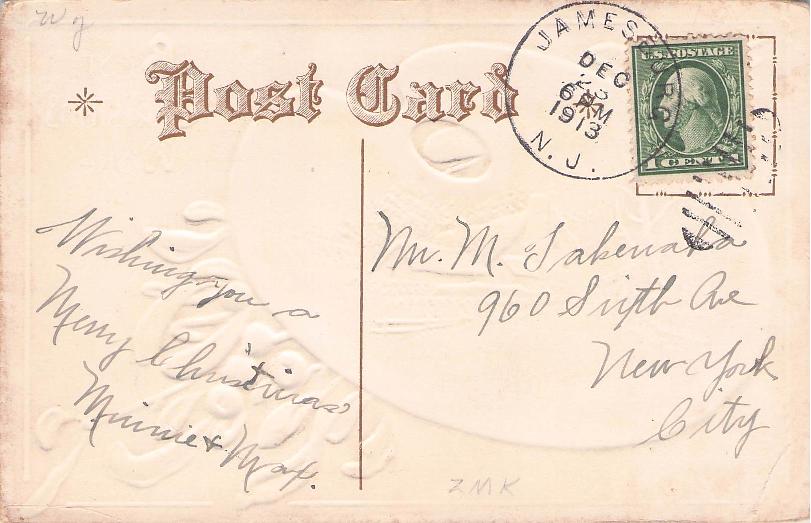 Wy
Post Card
JAMESBURG
DEC
6 PM
1913
N. J.
U.S. POSTAGE
1 CENT 1
Wishing you a
Merry Christmas
Minnie & Max.
Mr. M. Takenaka
960 Sixth Ave
New York
City
ZMK